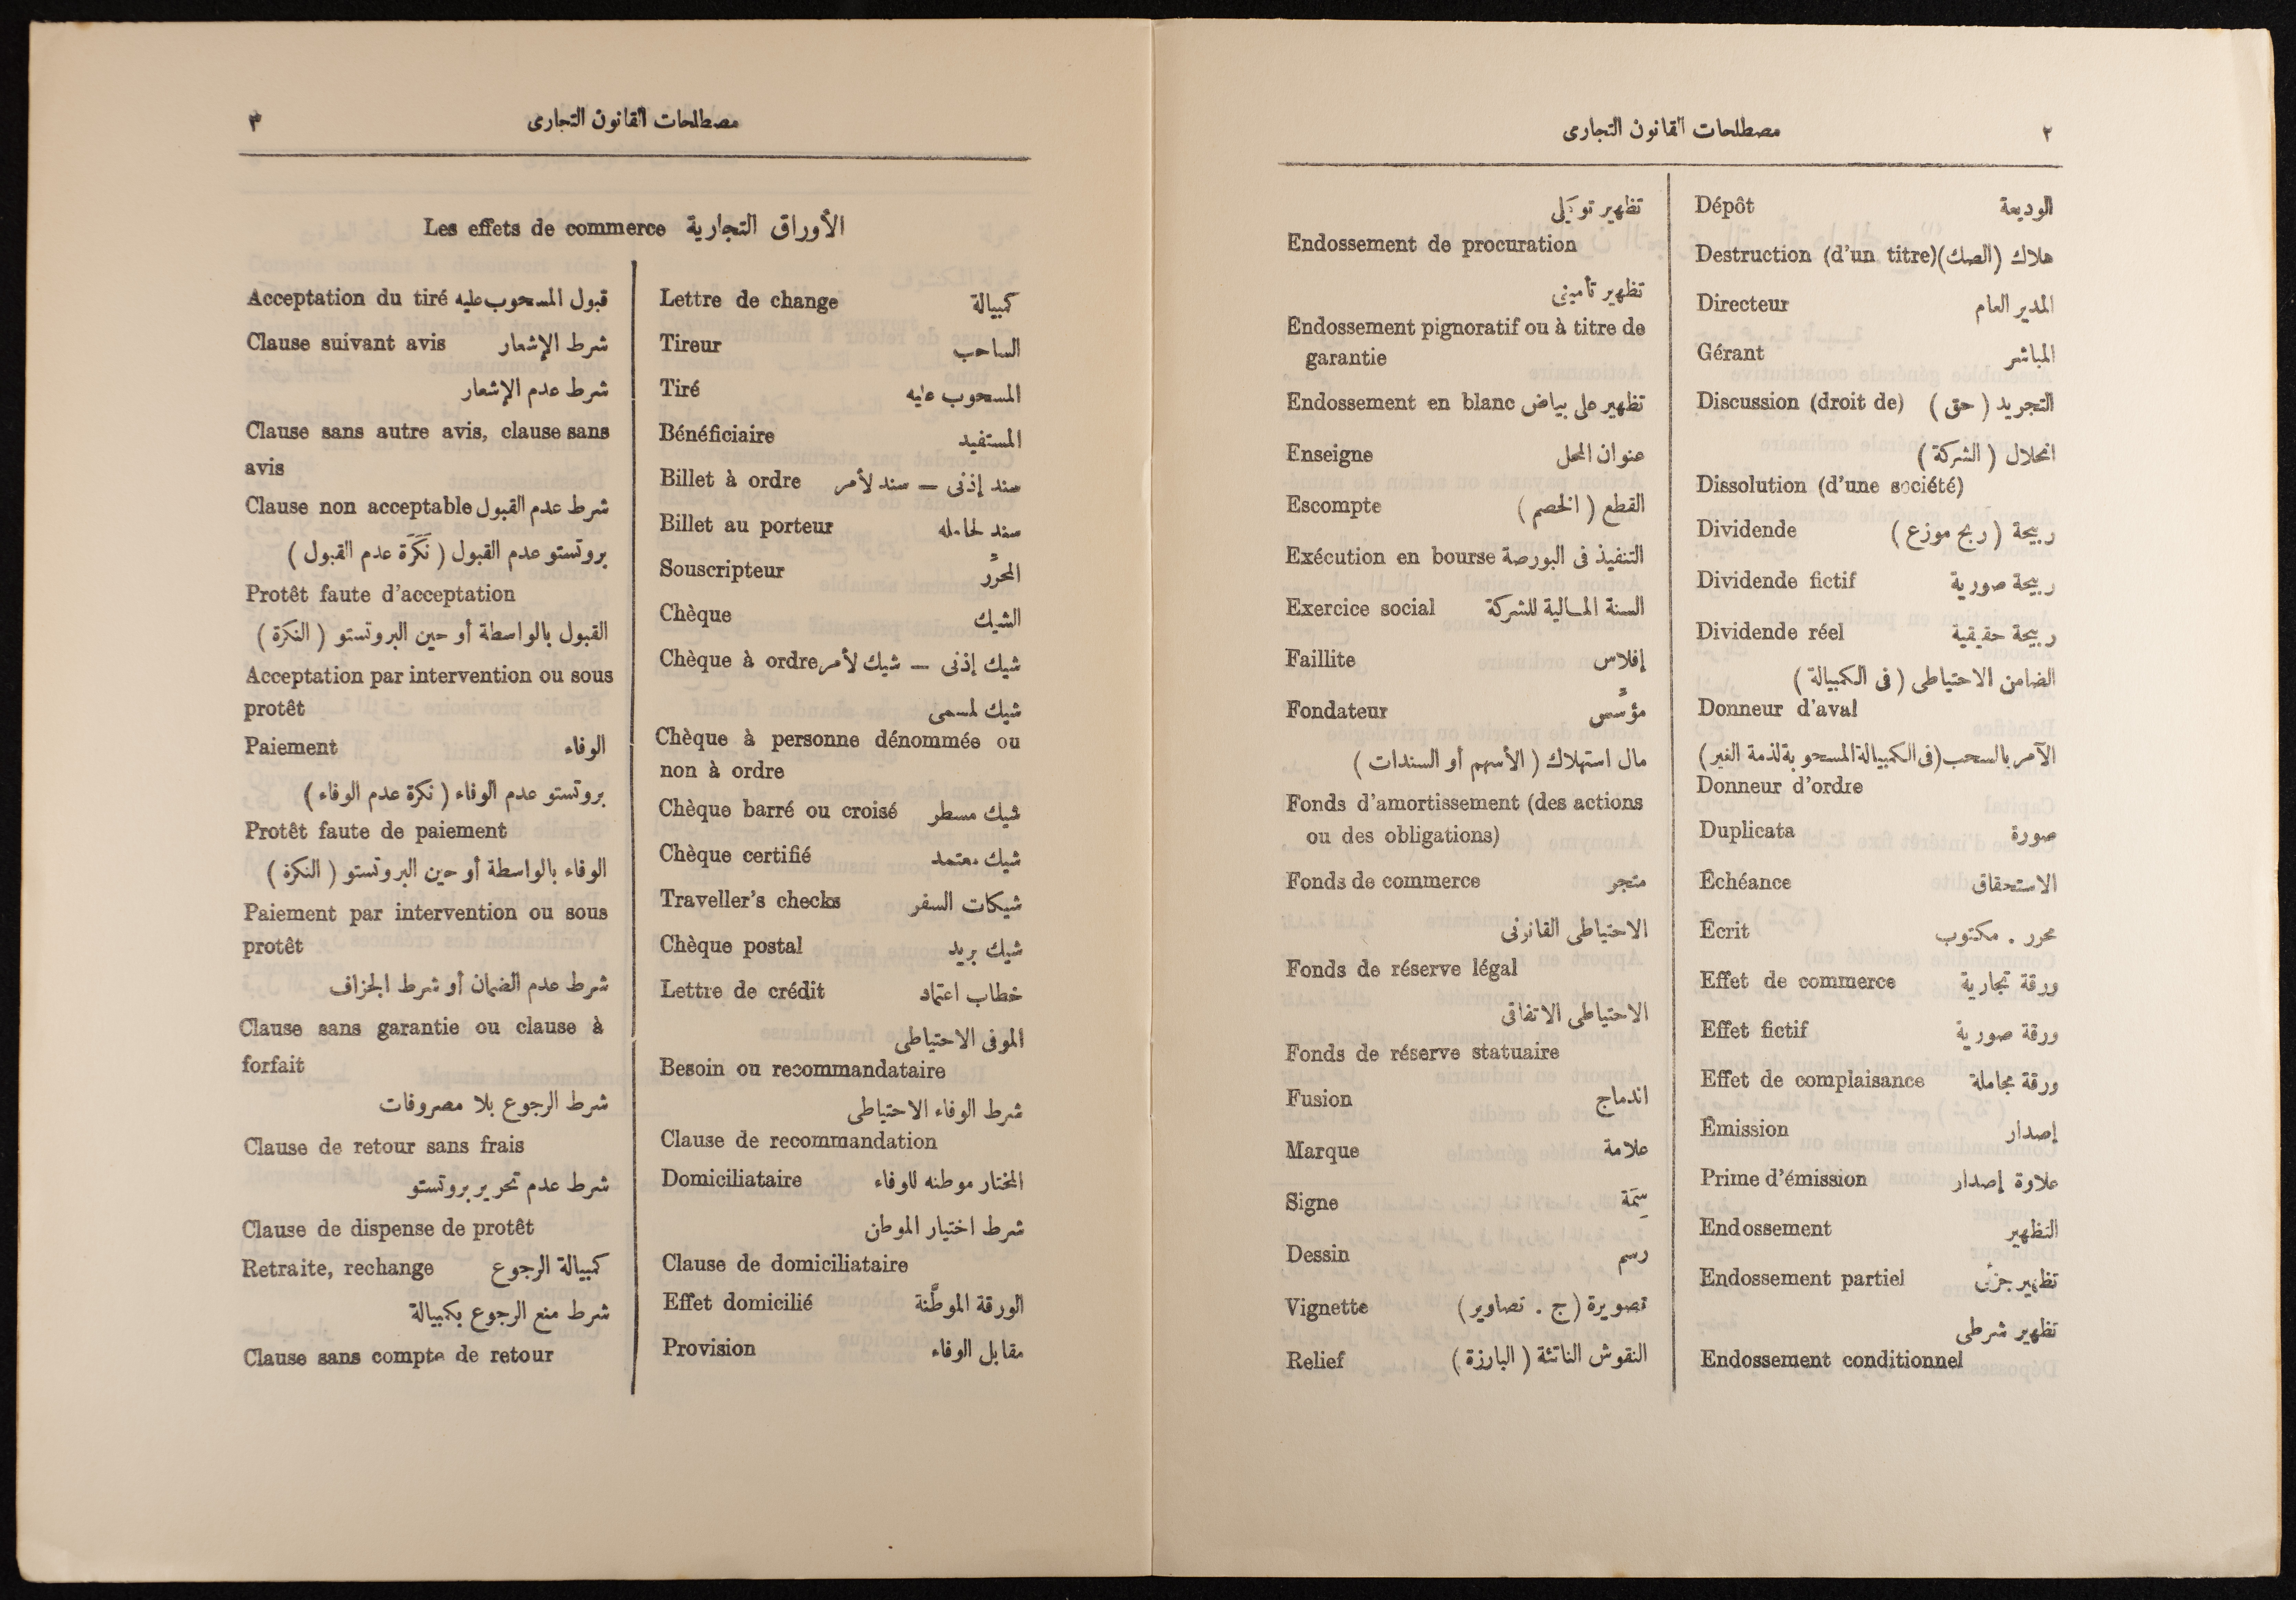 ٢
مصطلحات القانون التجارى
Dépôt الوديعة
Destruction (d'un titre) هلاك (الصك)
Directeur المدير العام
Gérant المباشر
Discussion (droit de) التجريد (حق)
انحلال (الشركة)
Dissolution (d'une société)
Dividende ربيحة (ربح موزع)
Dividende fictif ربيحة صورية
Dividende réel ربيحة حقيقية
الضامن الاحتياطى (فى الكمبيالة)
Donneur d'aval
الآمر بالسحب (فى الكمبيالة المسحوبة لذمة الغير)
Donneur d'ordre
Duplicata صورة
Échéance الاستحقاق
Écrit محرر . مكتوب
Effet de commerce ورقة تجارية
Effet fictif ورقة صورية
Effet de complaisance ورقة مجاملة
Émission إصدار
Prime d'émission علاوة إصدار
Endossement التظهير
Endossement partiel تظهير جزئى
تظهير شرطى
Endossement conditionnel
تظهير توكيلى
Endossement de procuration
تظهير تأمينى
Endossement pignoratif ou à titre de
garantie
Endossement en blanc تظهير على بياض
Enseigne عنوان المحل
Escompte القطع (الخصم)
Exécution en bourse التنفيذ فى البورصة
Exercice social السنة المالية للشركة
Faillite إفلاس
Fondateur مؤسِّس
مال استهلاك (الأسهم أو السندات)
Fonds d'amortissement (des actions
ou des obligations)
Fonds de commerce متجر
الاحتياطى القانونى
Fonds de réserve légal
الاحتياطى الاتفاقى
Fonds de réserve statuaire
Fusion اندماج
Marque علامة
Signe سِمَة
Dessin رسم
Vignette تصويرة (ج . تصاوير)
Relief النقوش الناتئة (البارزة)
مصطلحات القانون التجارى
٣
Les effets de commerce الأوراق التجارية
Lettre de change كمبيالة
Tireur الساحب
Tiré المسحوب عليه
Bénéficiaire المستفيد
Billet à ordre سند إذنى — سند لأمر
Billet au porteur سند لحامله
Souscripteur المحرِّر
Chèque الشيك
Chèque à ordre شيك إذنى — شيك لأمر
شيك لمسمى
Chèque à personne dénommée ou
non à ordre
Chèque barré ou croisé شيك مسطر
Chèque certifié شيك معتمد
Traveller's checks شيكات السفر
Chèque postal شيك بريد
Lettre de crédit خطاب اعتماد
الموفى الاحتياطى
Besoin ou recommandataire
شرط الوفاء الاحتياطى
Clause de recommandation
Domiciliataire المختار موطنه للوفاء
شرط اختيار الموطن
Clause de domiciliataire
Effet domicilié الورقة الموطَّنة
Provision مقابل الوفاء
Acceptation du tiré قبول المسحوب عليه
Clause suivant avis شرط الإشعار
شرط عدم الإشعار
Clause sans autre avis, clause sans
avis
Clause non acceptable شرط عدم القبول
بروتستو عدم القبول (نَكَرَة عدم القبول)
Protêt faute d'acceptation
القبول بالواسطة أو حين البروتستو (النكرة)
Acceptation par intervention ou sous
protêt
Paiement الوفاء
بروتستو عدم الوفاء (نكرة عدم الوفاء)
Protêt faute de paiement
الوفاء بالواسطة أو حين البروتستو (النكرة)
Paiement par intervention ou sous
protêt
شرط عدم الضمان أو شرط الجزاف
Clause sans garantie ou clause à
forfait
شرط الرجوع بلا مصروفات
Clause de retour sans frais
شرط عدم تحرير بروتستو
Clause de dispense de protêt
Retraite, rechange كمبيالة الرجوع
شرط منع الرجوع بكمبيالة
Clause sans compte de retour